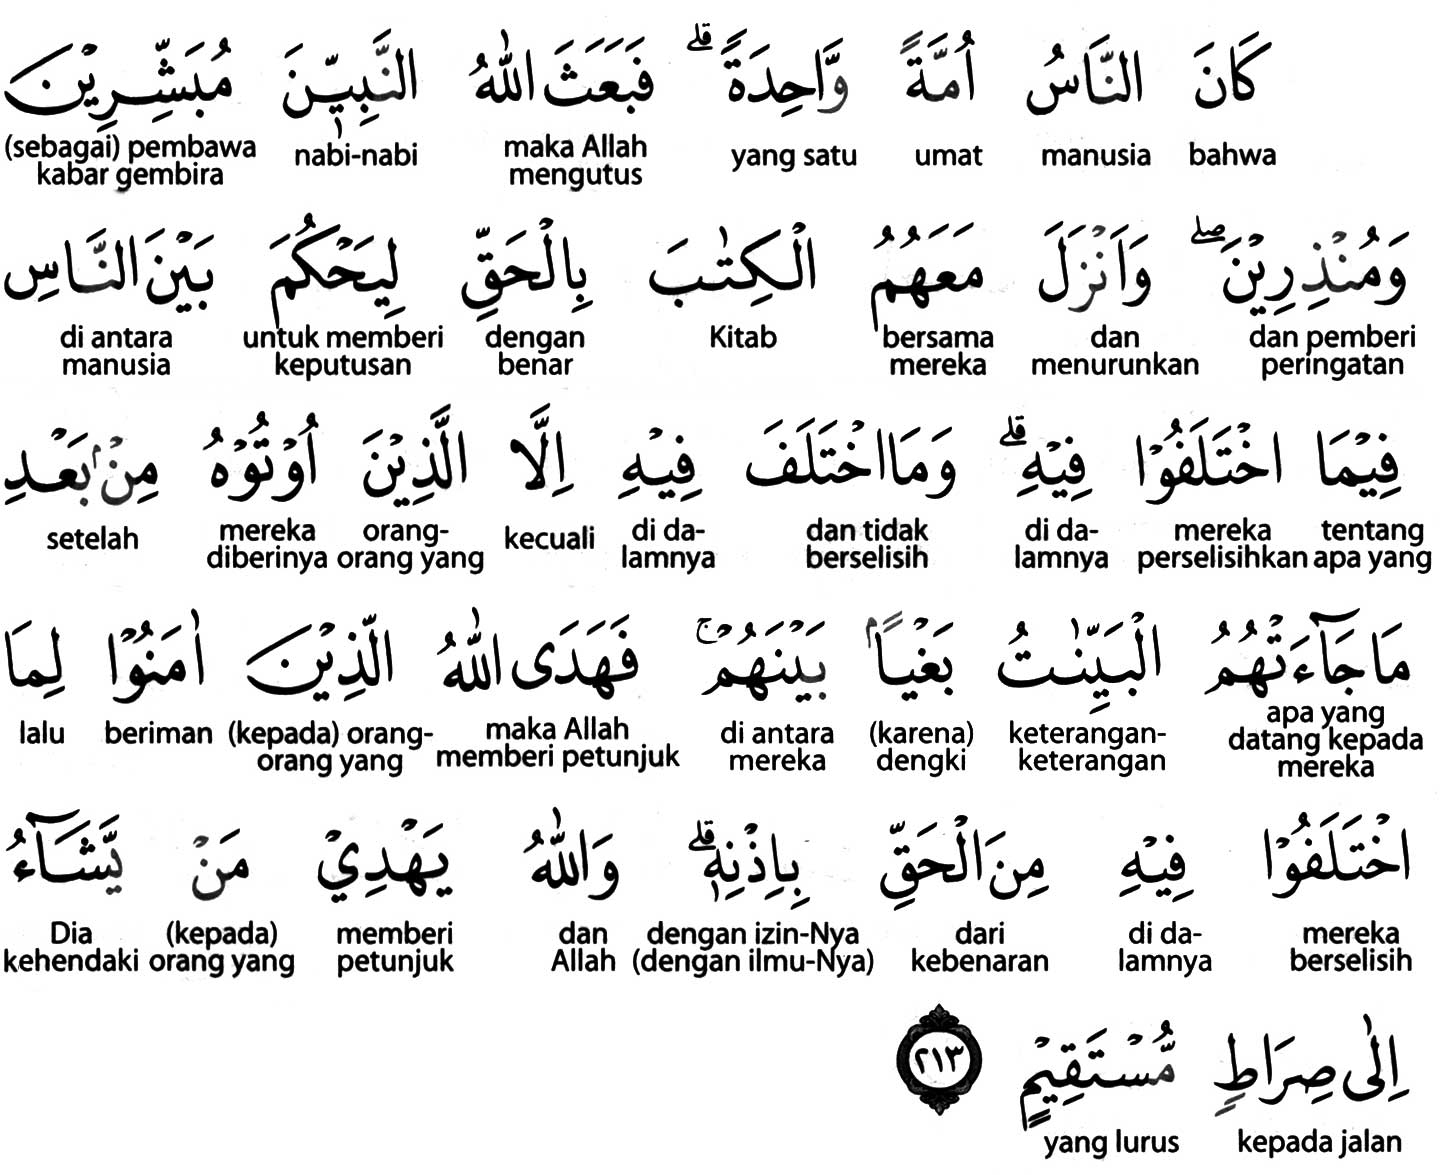 كَانَ النَّاسُ اُمَّةً وَّاحِدَةً ۗ فَبَعَثَ اللّٰهُ النَّبِيّٖنَ مُبَشِّرِيْنَ
bahwa manusia umat yang satu maka Allah mengutus nabi-nabi (sebagai) pembawa kabar gembira
وَمُنْذِرِيْنَ ۖ وَاَنْزَلَ مَعَهُمُ الْكِتٰبَ بِالْحَقِّ لِيَحْكُمَ بَيْنَ النَّاسِ
dan pemberi peringatan dan menurunkan bersama mereka Kitab dengan benar untuk memberi keputusan di antara manusia
فِيْمَا اخْتَلَفُوْا فِيْهِ ۗ وَمَا اخْتَلَفَ فِيْهِ اِلَّا الَّذِيْنَ اُوْتُوْهُ مِنْۢ بَعْدِ
tentang apa yang mereka perselisihkan di da-lamnya dan tidak berselisih di da-lamnya kecuali orang-orang yang mereka diberinya setelah
مَا جَاۤءَتْهُمُ الْبَيِّنٰتُ بَغْيًاۢ بَيْنَهُمْ ۚ فَهَدَى اللّٰهُ الَّذِيْنَ اٰمَنُوْا لِمَا
apa yang datang kepada mereka keterangan-keterangan (karena) dengki di antara mereka maka Allah memberi petunjuk (kepada) orang-orang yang beriman lalu
اخْتَلَفُوْا فِيْهِ مِنَ الْحَقِّ بِاِذْنِهٖ ۗ وَاللّٰهُ يَهْدِيْ مَنْ يَّشَاۤءُ
mereka berselisih di da-lamnya dari kebenaran dengan izin-Nya (dengan ilmu-Nya) dan Allah memberi petunjuk (kepada) orang yang Dia kehendaki
اِلٰى صِرَاطٍ مُّسْتَقِيْمٍ ٢١٣
kepada jalan yang lurus